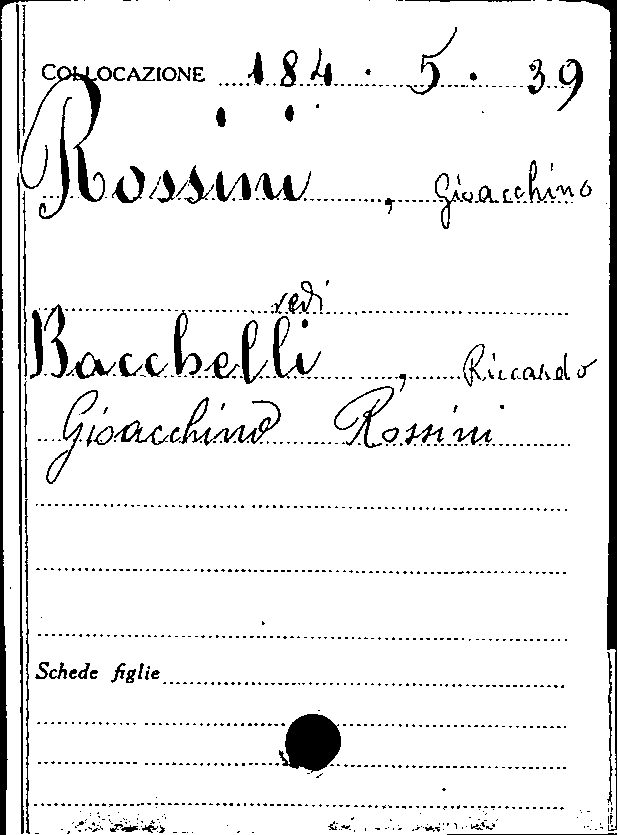 COLLOCAZIONE 184 . 5 . 39
Rossini , Gioacchino
vedi
Bacchelli , Riccardo
Gioacchino Rossini
Schede figlie